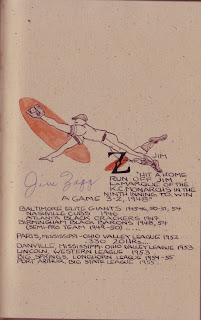 Jim Zapp
JIM
Z "HIT A HOME
RUN OFF JIM
LaMARQUE OF THE
K.C. MONARCHS IN THE
NINTH INNING TO WIN
A GAME 3-2, 1948"
BALTIMORE ELITE GIANTS 1945-46, 50-51, 54
NASHVILLE CUBS 1946
ATLANTA BLACK CRACKERS 1947
BIRMINGHAM BLACK BARONS 1948, 54
(SEMI-PRO TEAM 1949-50)
PARIS, MISSISSIPPI-OHIO VALLEY LEAGUE 1952
.330 20 HRs
DANVILLE, MISSISSIPPI-OHIO VALLEY LEAGUE 1953
LINCOLN, WESTERN LEAGUE 1953
BIG SPRINGS, LONGHORN LEAGUE 1954-55
PORT ARTHUR, BIG STATE LEAGUE 1955